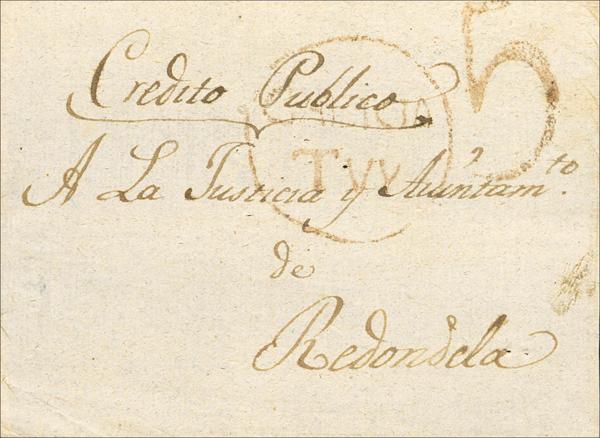 5
Credito Publico
GALICIA
Tvy
A La Justicia y Aiuntam.to
de
Redondela